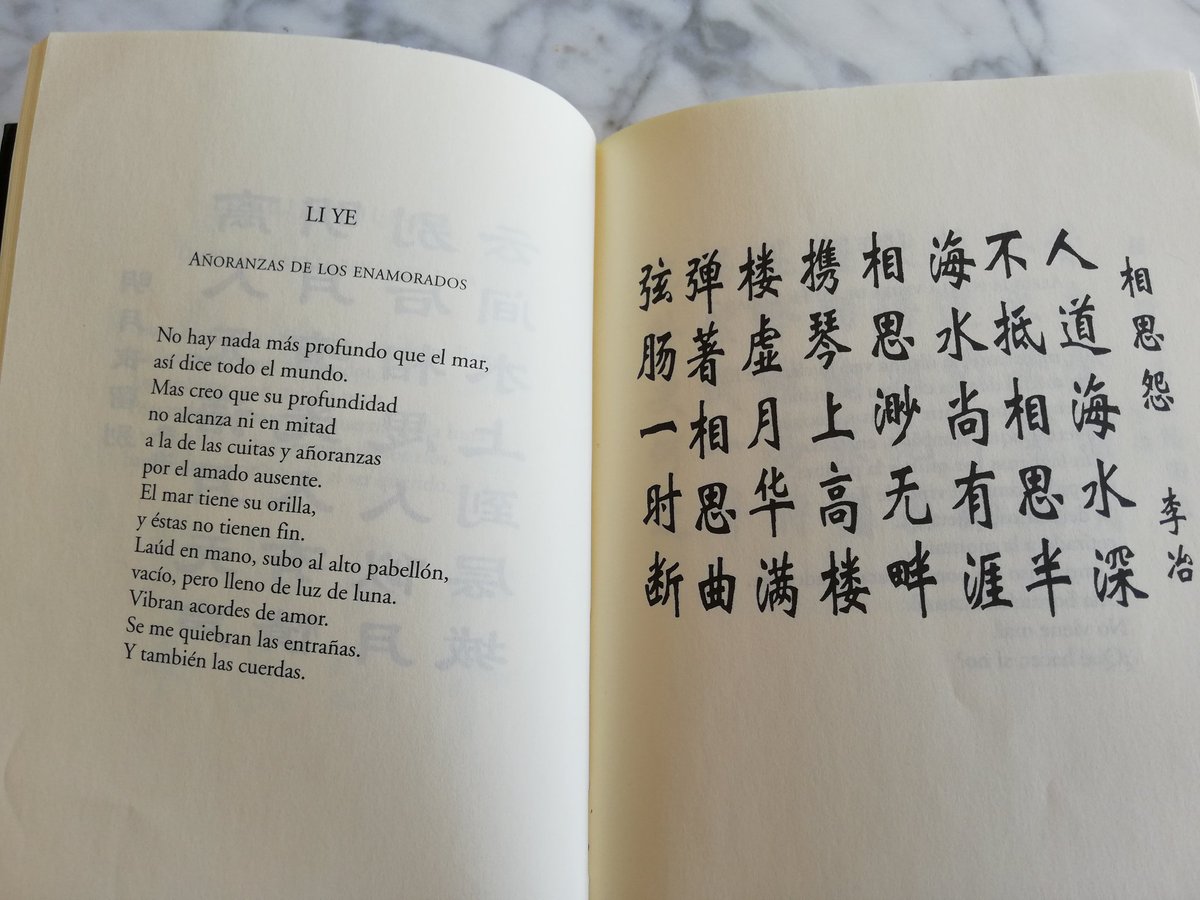 LI YE
AÑORANZAS DE LOS ENAMORADOS
No hay nada más profundo que el mar,
así dice todo el mundo.
Mas creo que su profundidad
no alcanza ni en mitad
a la de las cuitas y añoranzas
por el amado ausente.
El mar tiene su orilla,
y éstas no tienen fin.
Laúd en mano, subo al alto pabellón,
vacío, pero lleno de luz de luna.
Vibran acordes de amor.
Se me quiebran las entrañas.
Y también las cuerdas.
相思怨
李冶
人道海水深
不抵相思半
海水尚有涯
相思渺无畔
携琴上高楼
楼虚月华满
弹著相思曲
弦肠一时断